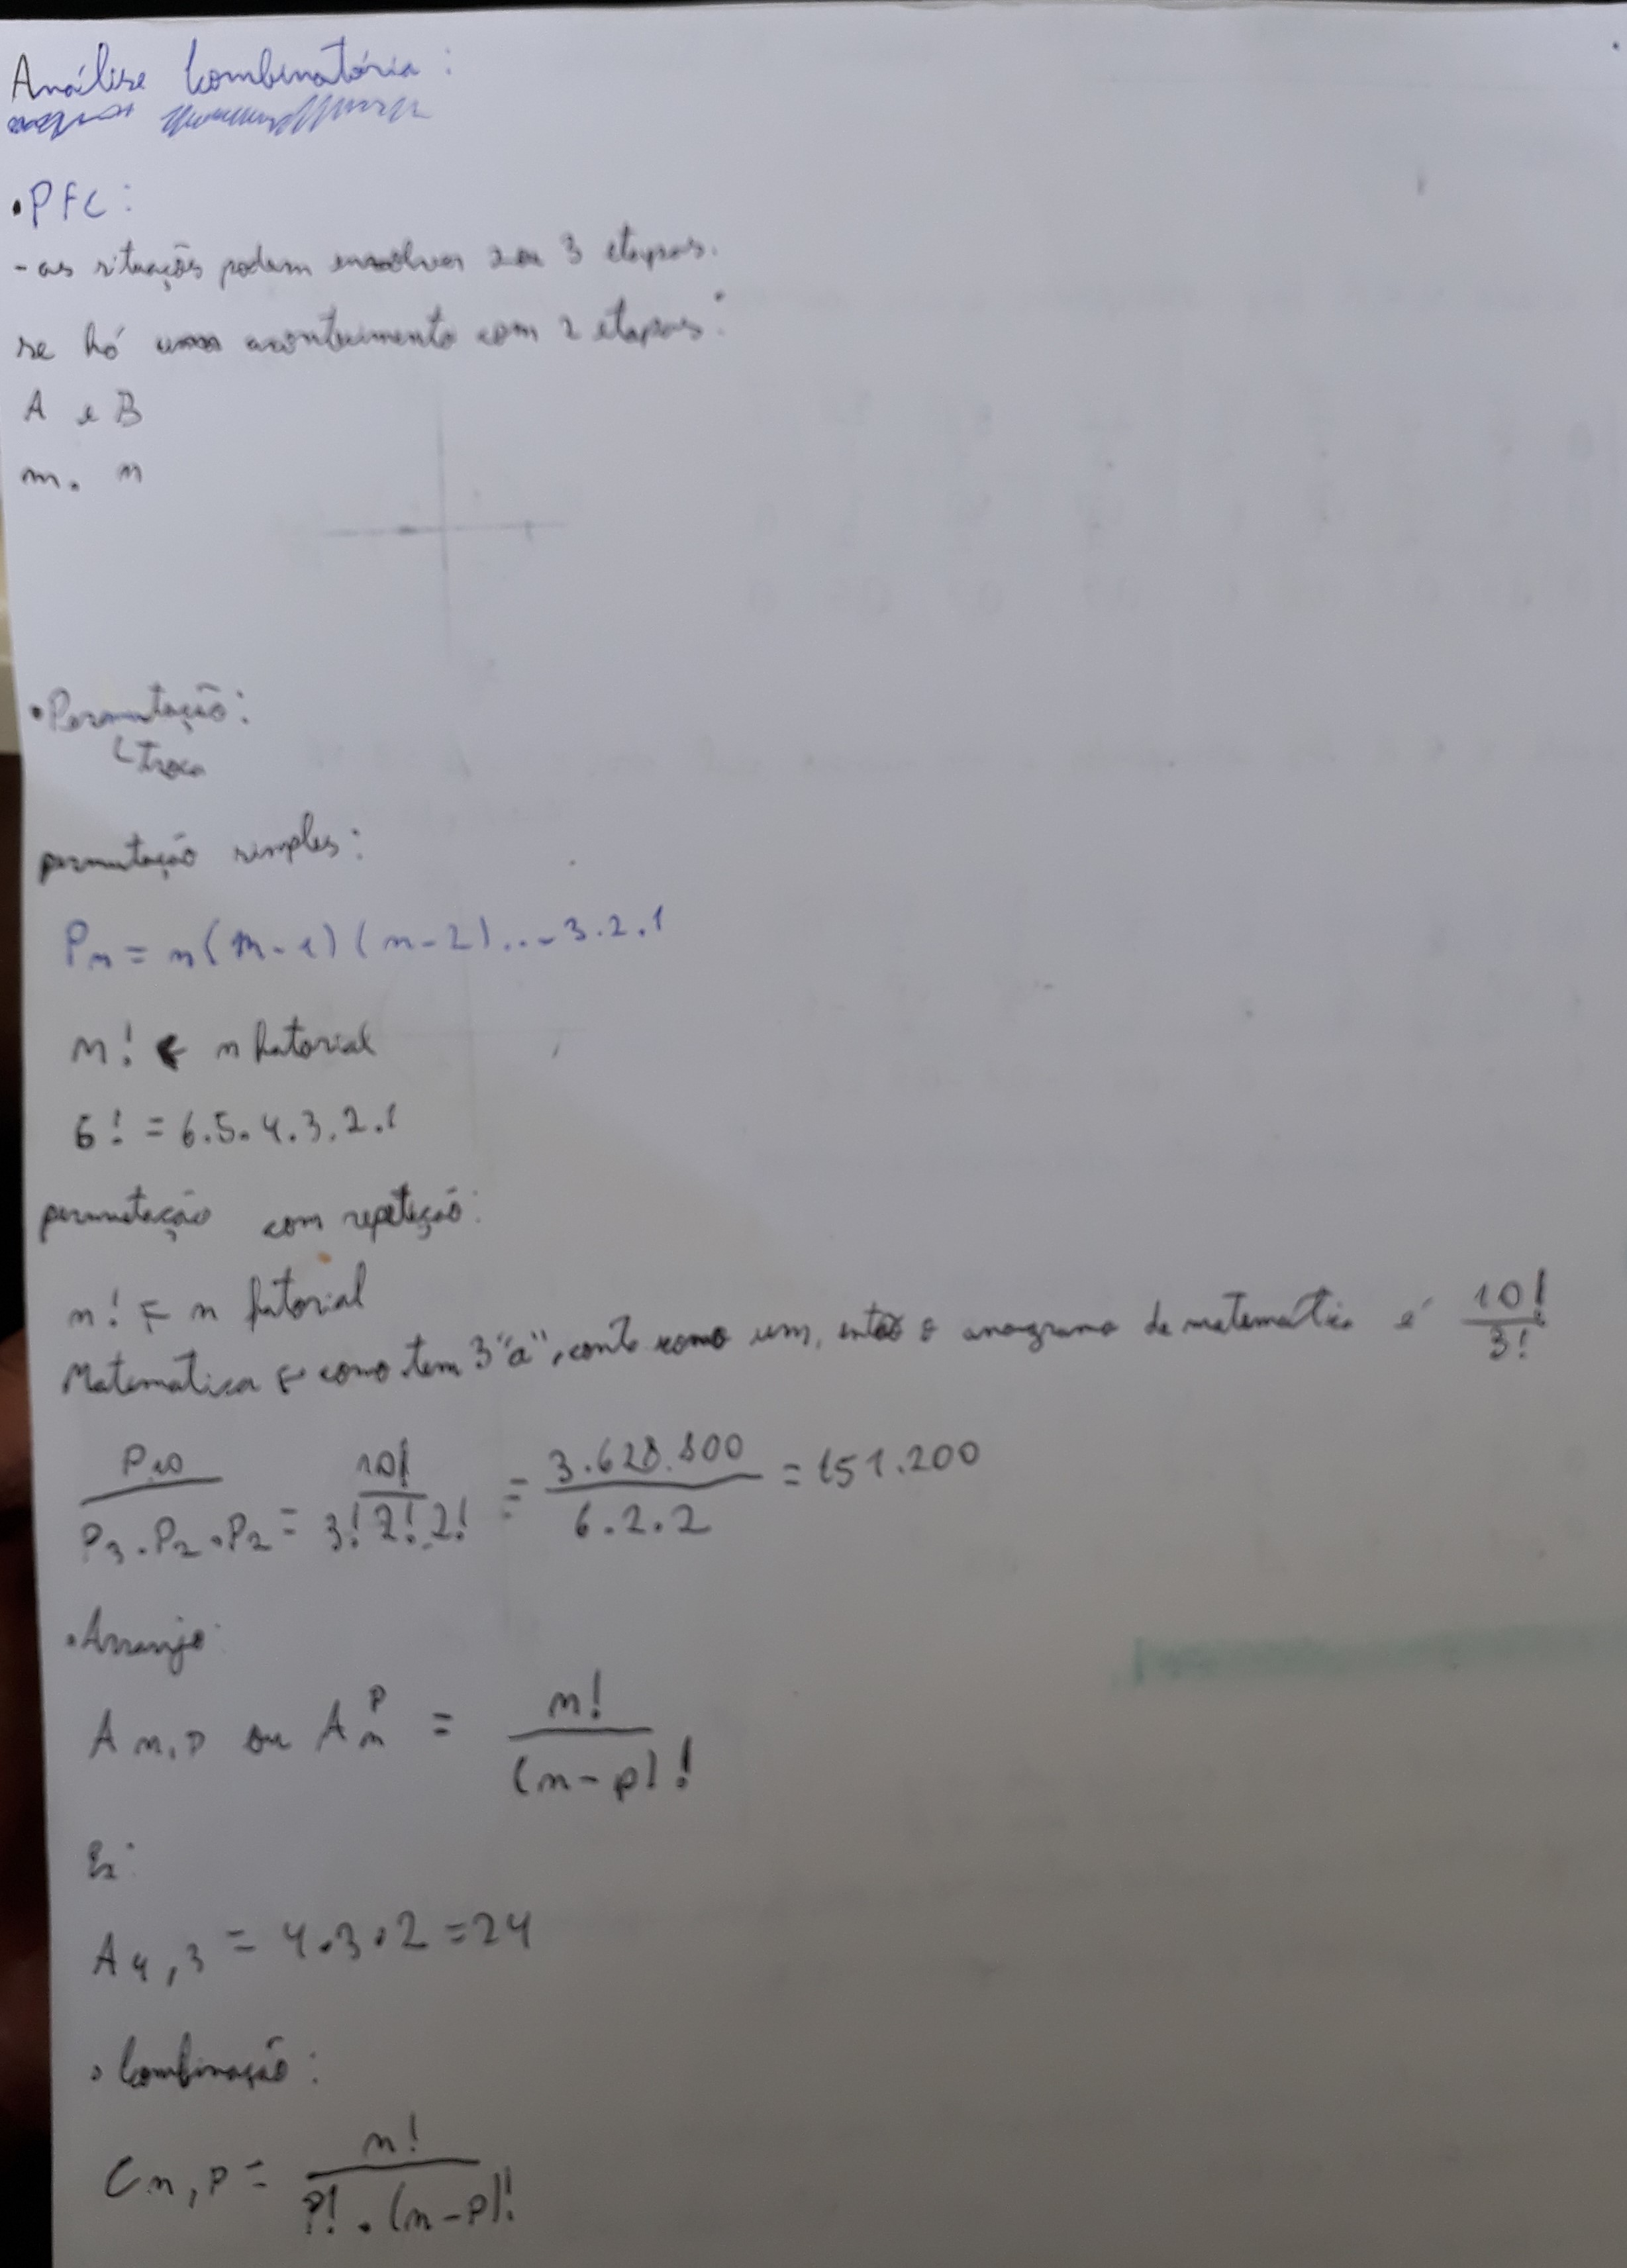 Análise Combinatória:
• PFC:
- as situações podem envolver 2 ou 3 etapas.
se há um acontecimento com 2 etapas:
A e B
m . n
• Permutação:
↳ Troca
permutação simples:
Pn = n(n-1)(n-2)...3.2.1
n! ← n fatorial
6! = 6.5.4.3.2.1
permutação com repetição:
n! ← n fatorial
Matematica ← como tem 3 "a", conto como um, então o anagrama de matemática é 10!/3!
P10/P3.P2.P2 = 10!/3!2!.2! = 3.628.800/6.2.2 = 151.200
• Arranjo:
An,p ou A^p_n = n!/(n-p)!
Ex:
A4,3 = 4.3.2 = 24
• Combinação:
Cn,p = n!/p!.(n-p)!